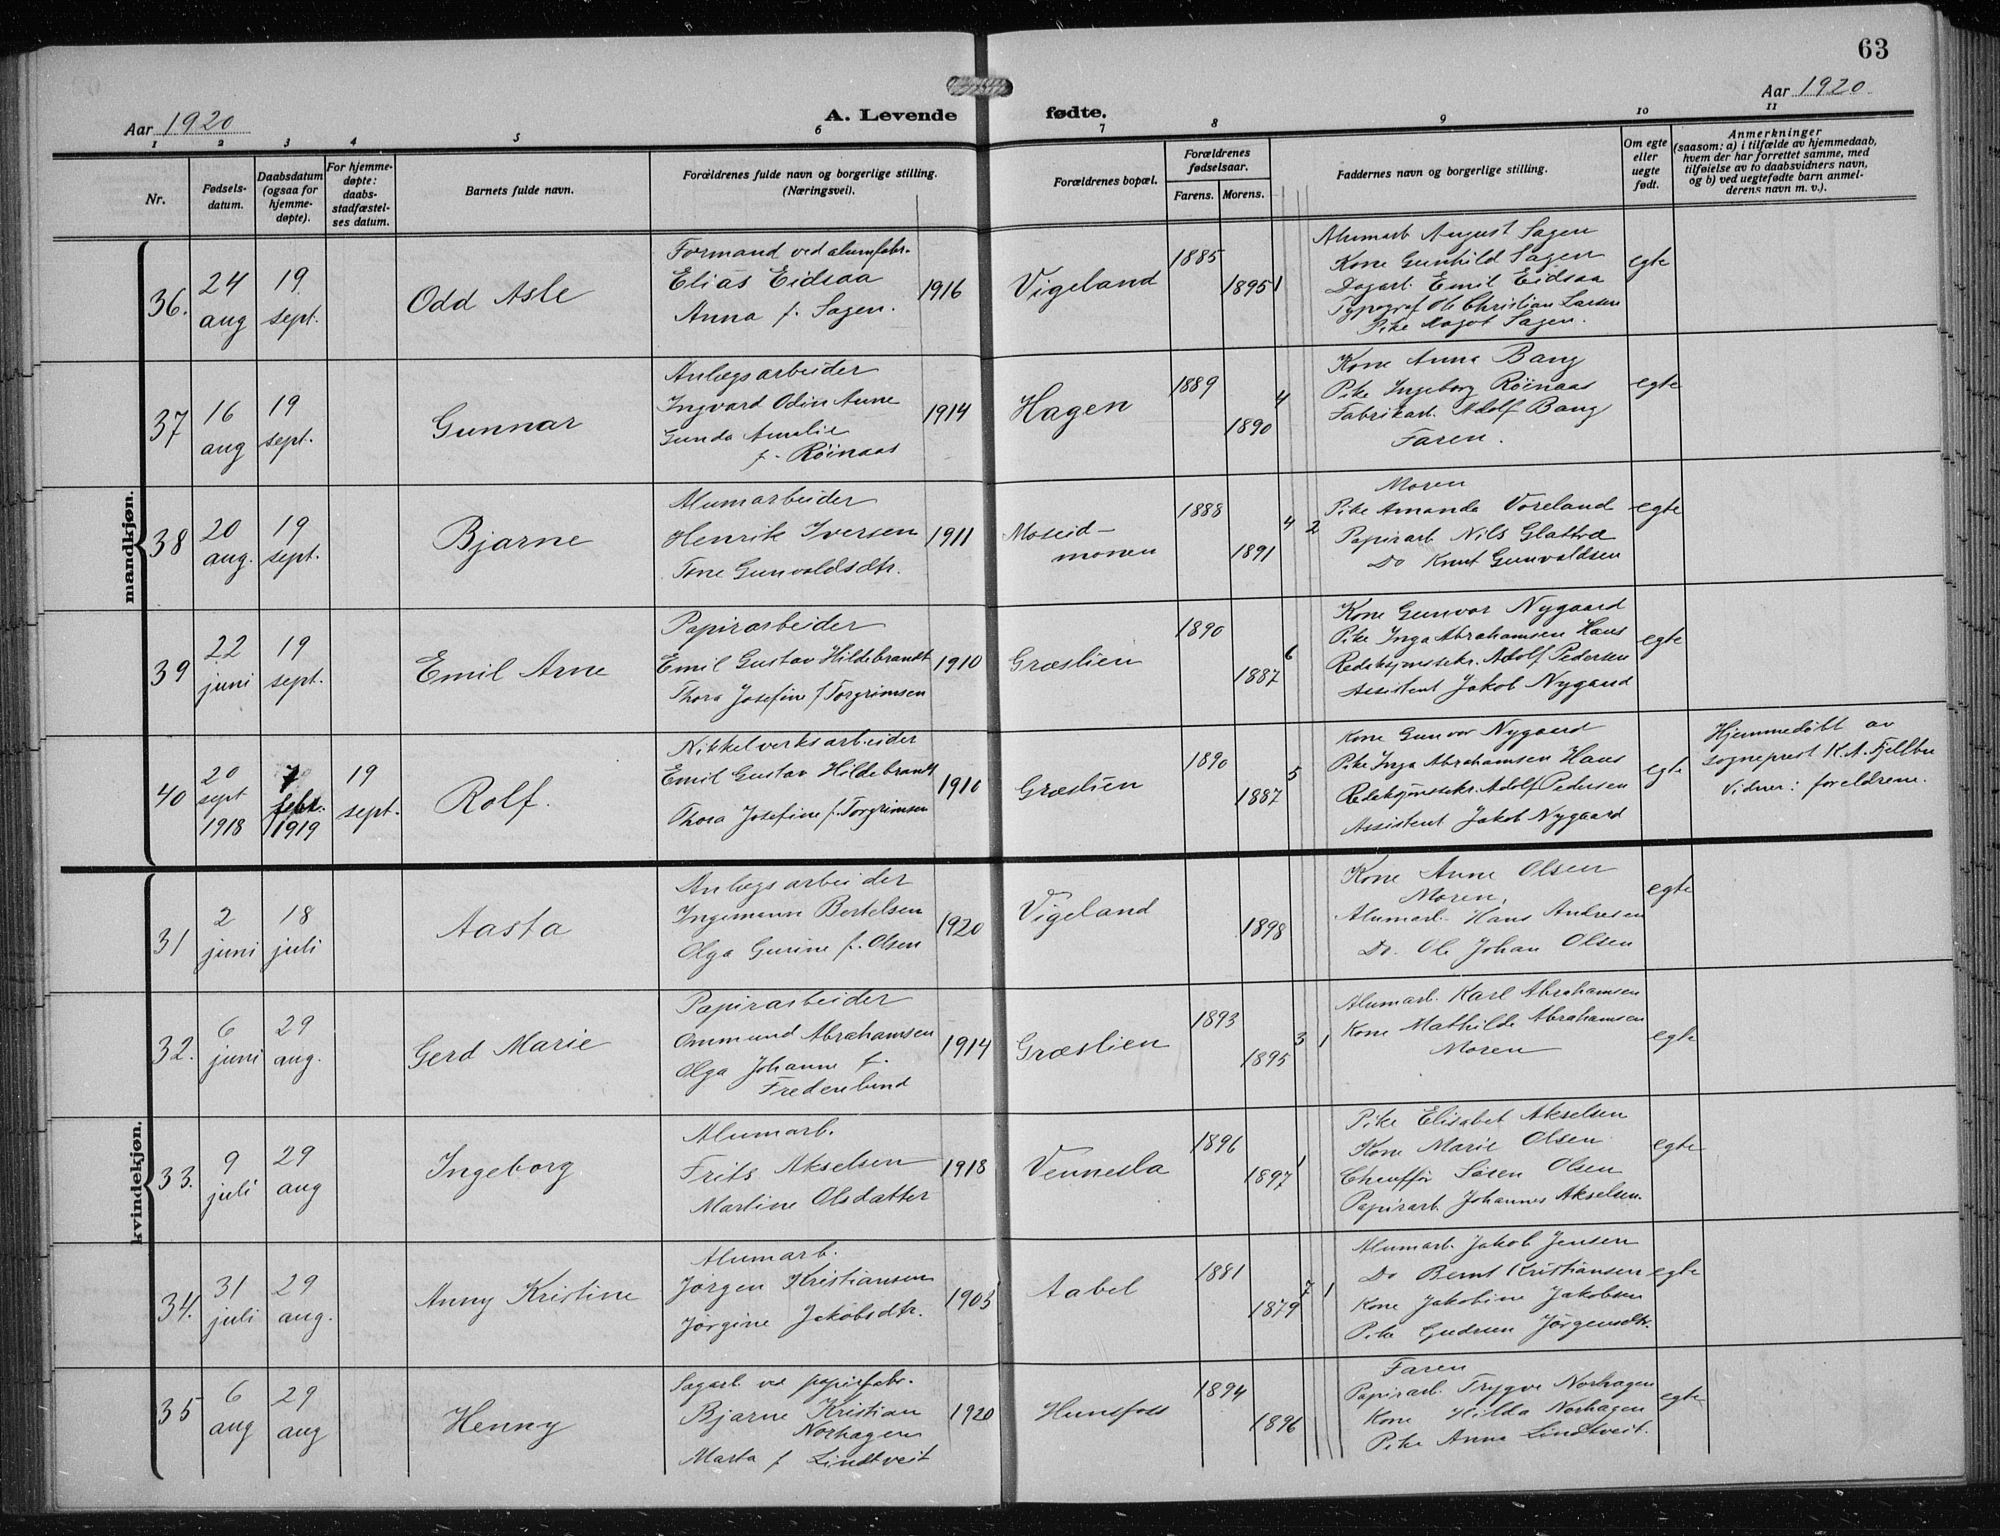 63
Aar 1920
A. Levende fødte.
Aar 1920
1 2 3 4 5 6 7 8 9 10 11
Nr.
Fødsels-
datum.
Daabsdatum
(ogsaa for
hjemme-
døpte).
For hjemme-
døpte:
daabs-
stadfæstel-
ses datum.
Barnets fulde navn.
Forældrenes fulde navn og borgerlige stilling.
(Næringsvei).
Forældrenes bopæl.
Forældrenes
fødselsaar.
Farens. Morens.
Faddernes navn og borgerlige stilling.
Om egte
eller
uegte
født.
Anmerkninger
(saasom: a) i tilfælde av hjemmedaab,
hvem der har forrettet samme, med
tilføielse av to daabsvidners navn,
og b) ved uegtefødte barn anmel-
derens navn m. v.).
mandkjøn.
36.
24
aug
19
sept.
Odd Asle
Formand ved alumfabr.
Elias Eidsaa
Anna f. Sagen.
1916
Vigeland
1885
1895
1
Alumarb August Sagen
Kone Gunhild Sagen
Dagarb. Emil Eidsaa
Typograf Ole Christian Larsen
Pike Magot Sagen.
egte
37
16
aug
19
sept.
Gunnar
Anlægsarbeider
Ingvard Odin Aune
Gunda Amalie
f. Röinaas
1914
Hagen
1889
1890
4
Kone Anna Bang
Pike Ingeborg Röinaas
Fabrikarb. Adolf Bang
Faren.
egte
38
20
aug.
19
sept.
Bjarne
Alumarbeider
Henrik Iversen
Tone Gunvaldsdtr.
1911
Moseid-
monen
1888
1891
4 2
Moren
Pike Amanda Voreland
Papirarb Nils Glattræ
Do Knut Gunvaldsen
egte
39
22
juni
19
sept.
Emil Arne
Papirarbeider
Emil Gustav Hildebrandt
Thora Josefine f Torgrimsen
1910
Græslien
1890
1887
6
Kone Gunvor Nygaard
Pike Inga Abrahamsen Haus
Redaksjonssekr. Adolf Pedersen
Assistent Jakob Nygaard
egte
40
20
sept
1918
7
febr.
1919
19
sept.
Rolf.
Nikkelverksarbeider
Emil Gustav Hildebrandt
Thora Josefine f. Torgrimsen
1910
Græslien
1890
1887
5
Kone Gunvor Nygaard
Pike Inga Abrahamsen Haus
Redaksjonssekr. Adolf Pedersen
Assistent Jakob Nygaard
egte
Hjemmedöbt av
sogneprest K. A. Fjellbu
Vidner: foreldrene.
kvindekjøn.
31
2
juni
18
juli
Aasta
Anlægsarbeider
Ingemann Bertelsen
Olga Gurine f. Olsen
1920
Vigeland
1898
Kone Anne Olsen
Moren,
Alumarb. Hans Andresen
Do. Ole Johan Olsen
egte
32.
6
juni
29
aug.
Gerd Marie
Papirarbeider
Ommund Abrahamsen
Olga Johanne f.
Fredenlund
1914
Græslien
1893
1895
3 1
Alumarb. Karl Abrahamsen
Kone Mathilde Abrahamsen
Moren
egte
33.
9
juli
29
aug
Ingeborg
Alumarb.
Frits Akselsen
Martine Olsdatter
1918
Vennesla
1896
1897
1
Pike Elisabet Akselsen
Kone Marie Olsen
Chaufför Sören Olsen
Papirarb. Johannes Akselsen.
egte
34.
31
juli
29
aug.
Anny Kristine
Alumarb.
Jörgen Kristiansen
Jörgine Jakobsdtr.
1905
Aabel
1881
1879
7 1
Alumarb. Jakob Jensen
Do Bernt Kristiansen
Kone Jakobine Jakobsen
Pike Gudrun Jörgensdtr.
egte
35
6
aug
29
aug
Henny
Sagarb. ved papirfabr.
Bjarne Kristian
Norhagen
Marta f Lindtveit
1920
Hunsfoss
1894
1896
Faren
Papirarb. Trygve Norhagen
Kone Hilda Norhagen
Pike Anna Lindtveit.
egte